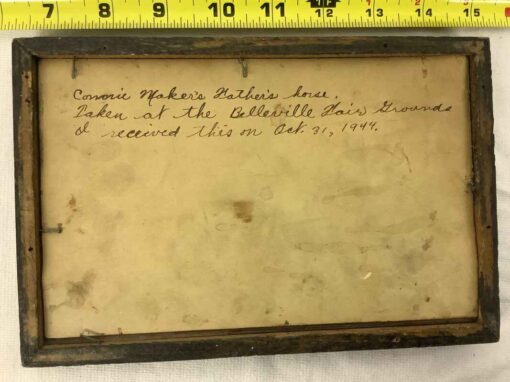 7 8 9 10 11 12 13 14 15
Connie Maker's Father's horse.
Taken at the Belleville Fair Grounds
I received this on Oct. 31, 1944.